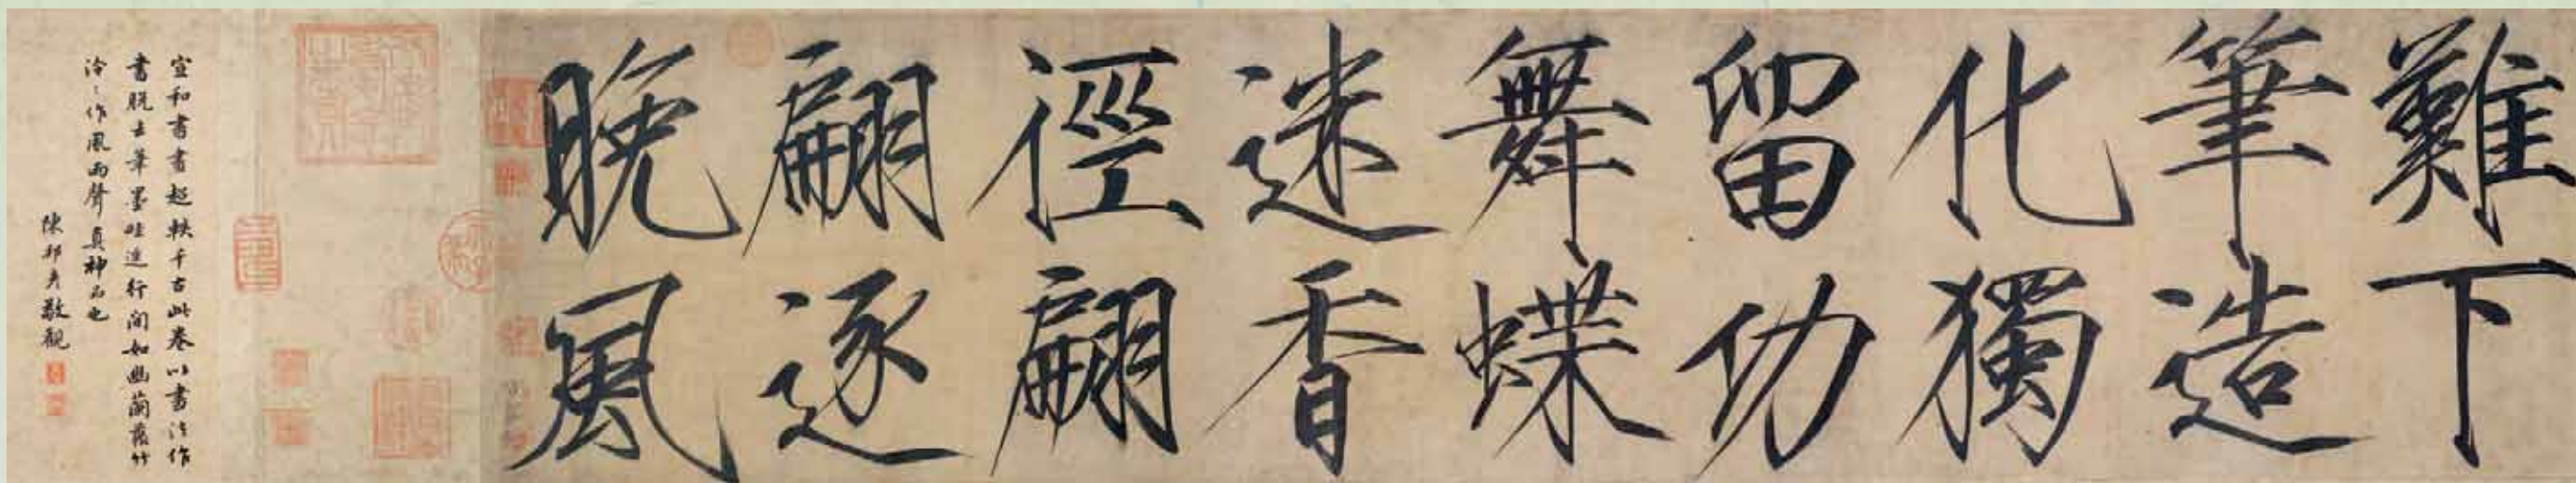 難下
筆造
化獨
留功
舞蝶
迷香
徑翩
翩逐
晚風
宣和書書超軼千古此卷以書法作
書脱去筆墨畦逕行間如幽蘭叢竹
泠泠作風雨聲真神品也
陳邦彦敬觀